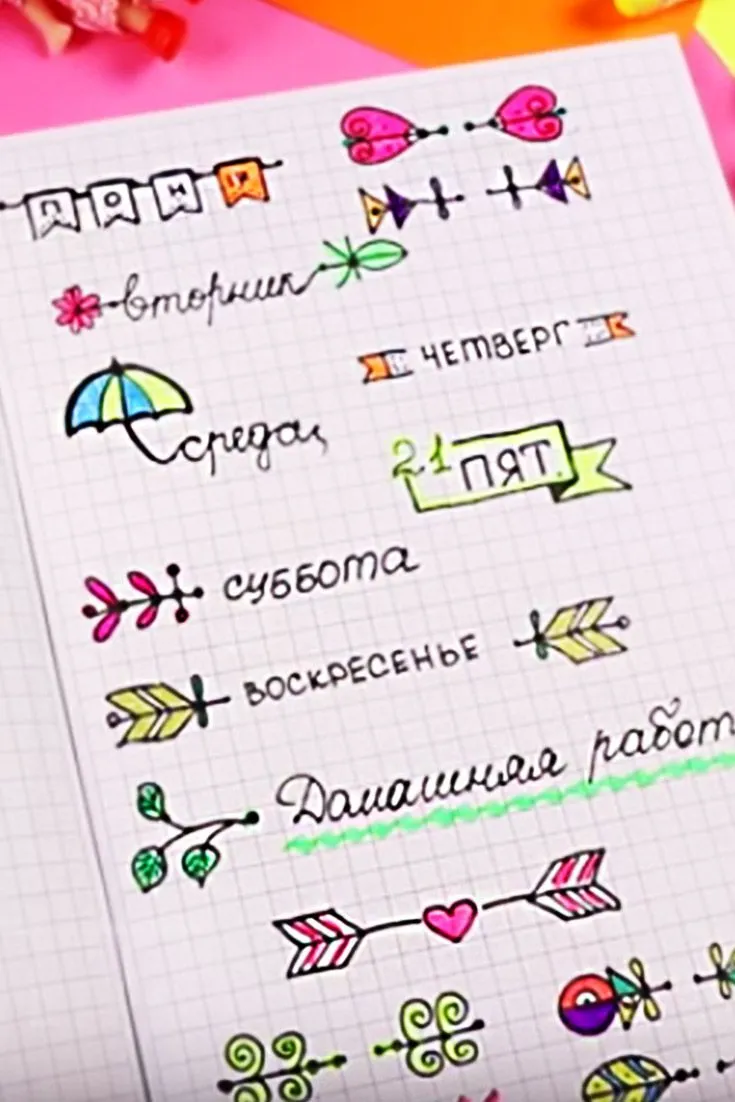 ПОН 17
вторник
ЧЕТВЕРГ
среда
21 ПЯТ.
суббота
ВОСКРЕСЕНЬЕ
Домашняя работ